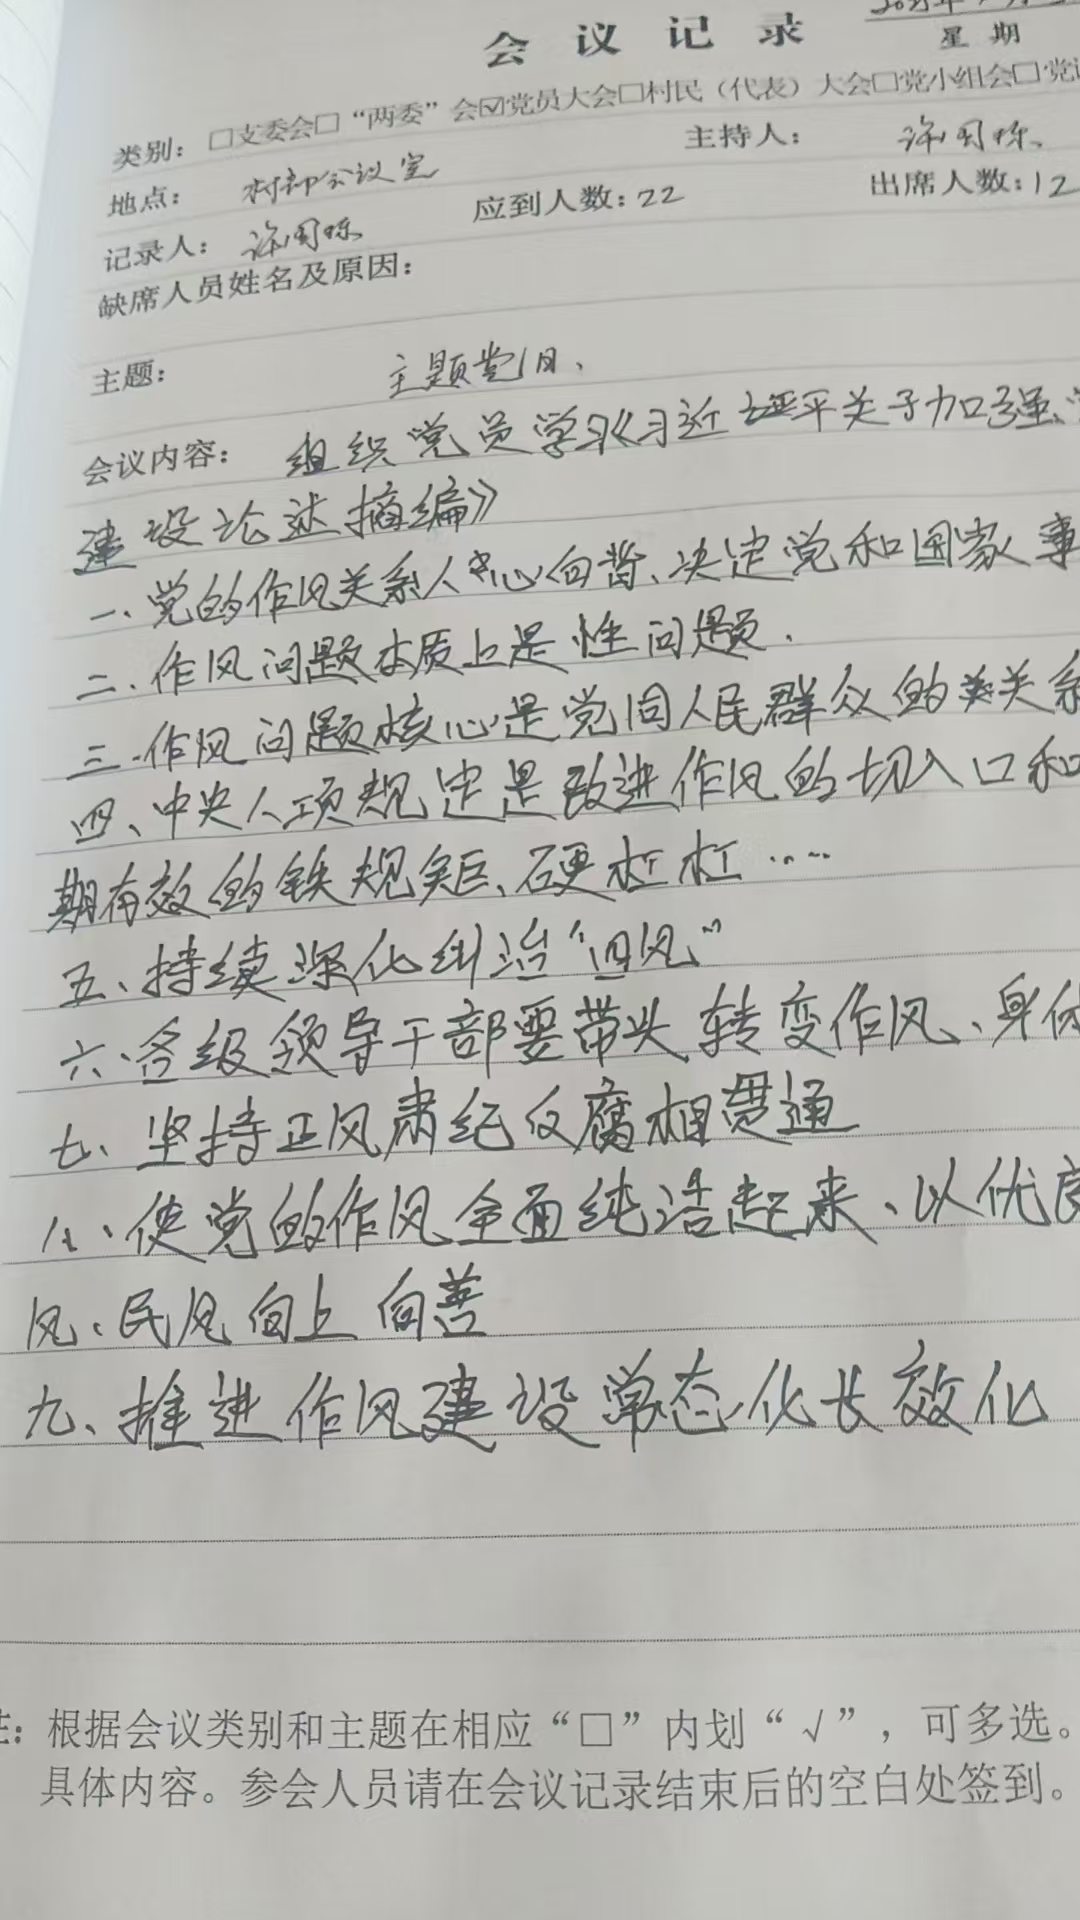 会议记录
星期
类别：□支委会□“两委”会☑党员大会□村民（代表）大会□党小组会□党
地点：村部会议室 主持人：许国栋
记录人：许国栋 应到人数：22 出席人数：12
缺席人员姓名及原因：
主题：主题党日、
会议内容：组织党员学习《习近平关于加强
建设论述摘编》
一、党的作风关系人心向背、决定党和国家事
二、作风问题本质上是性问题.
三、作风问题核心是党同人民群众的关系
四、中央八项规定是改进作风的切入口和
期有效的铁规矩、硬杠杠……
五、持续深化纠治“四风”
六、各级领导干部要带头转变作风、身体
七、坚持正风肃纪反腐相贯通
八、使党的作风全面纯洁起来、以优良
风、民风向上向善
九、推进作风建设常态化长效化
注：根据会议类别和主题在相应“□”内划“√”，可多选。
具体内容。参会人员请在会议记录结束后的空白处签到。